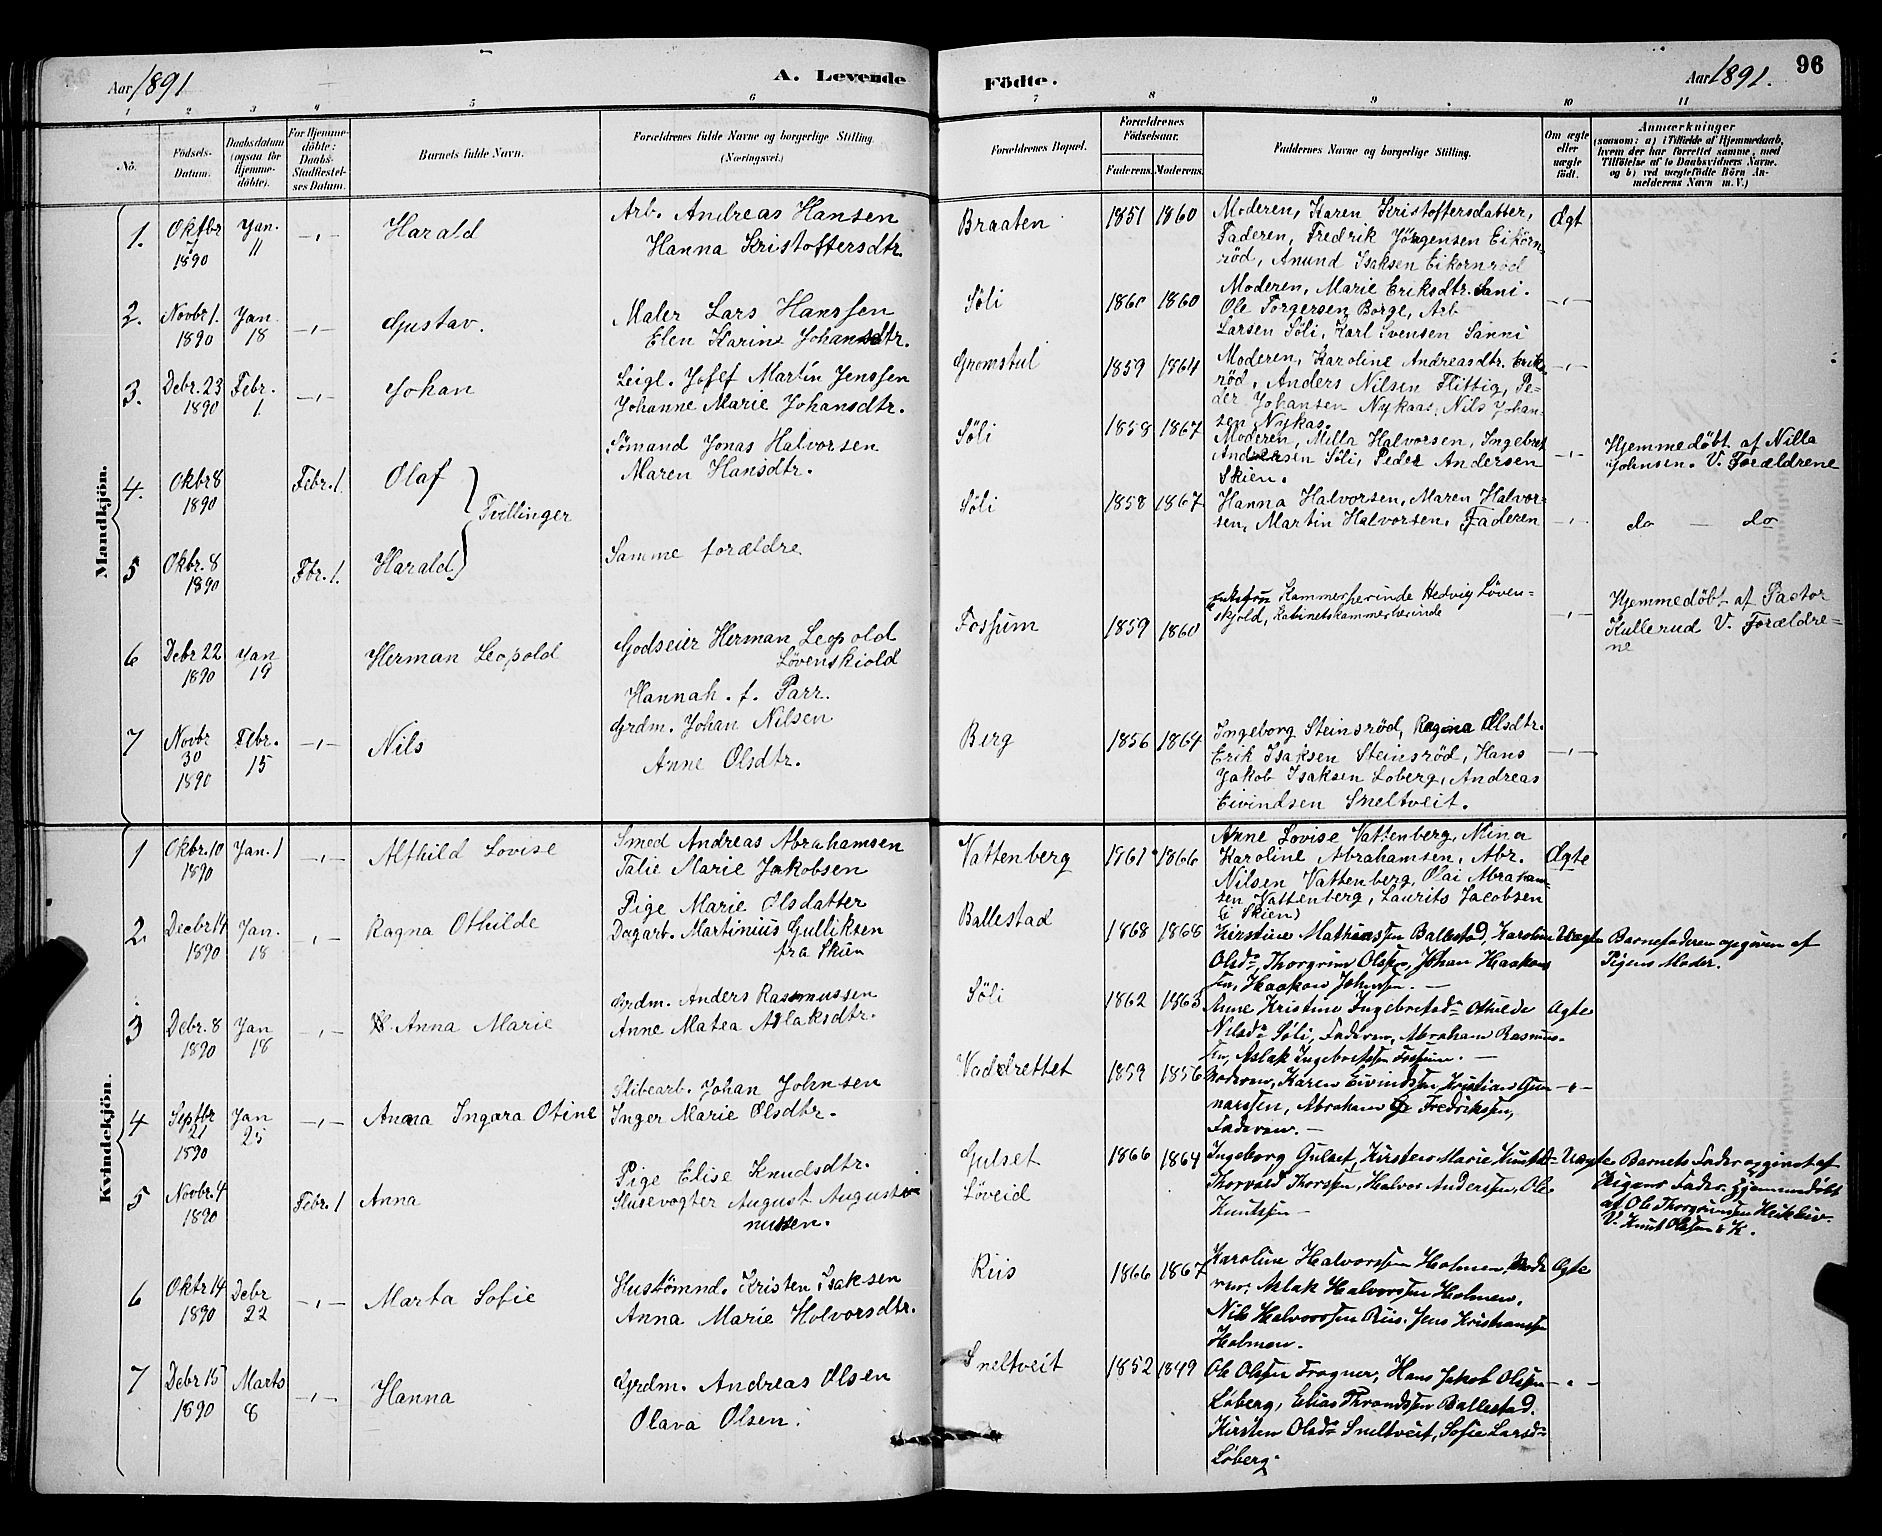 Aar 1891
A. Levende
Födte.
Aar 1891.
96
1 2 3 4 5 6 7 8 9 10 11
No.
Födsels-
Datum.
Daabsdatum
(ogsaa for
Hjemme-
döbte).
For Hjemme-
döbte:
Daabs-
Stadfæstel-
ses Datum.
Barnets fulde Navn.
Forældrenes fulde Navne og borgerlige Stilling.
(Næringsvei.)
Forældrenes Bopæl.
Forældrenes
Födselsaar.
Faderens. Moderens.
Faddernes Navne og borgerlige Stilling.
Om ægte
eller
uægte
födt.
Anmærkninger
(saasom: a) i Tilfælde af Hjemmedaab,
hvem der har forrettet samme, med
Tilföielse af to Daabsvidners Navne.
og b) ved uægtefödte Börn An-
melderens Navn m. V.)
Mandkjön.
1. Oktbr 1890 Jan. 11 -,- Harald
Arb. Andreas Hansen
Hanna Kristoffersdtr.
Braaten 1851 1860
Moderen, Karen Kristoffersdatter,
Faderen, Fredrik Jörgensen Eikörn-
röd, Anund Isaksen Eikornröd
Ægt
2. Novbr 1. 1890 Jan. 18 -,- Gustav.
Maler Lars Hanssen
Elen Karine Johansdtr.
Söli 1860 1860
Moderen, Marie Eriksdtr. Sani.
Ole Torgersen Borge, Arb
Larsen Söli, Karl Svensen Sanni
-,-
3. Debr. 23 1890 Febr. 1 -,- Johan
Leigl. Josef Martin Jenssen
Johanne Marie Johansdtr.
Gromstul 1859 1864
Moderen, Karoline Andreasdtr. Erik-
röd, Anders Nilsen Flittig, Pe-
der Johansen Nykaas, Nils Johan-
sen Nykas.
-,-
4. Oktbr 8 1890 Febr. 1. Olaf
Tvillinger
Sömand Jonas Halvorsen
Maren Hansdtr.
Söli 1858 1867
Moderen, Milla Halvorsen, Ingebret
Andersen Söli, Peder Andersen
Skien.
-,-
Hjemmedöbt af Nilla
Johnsen. V. Forældrene
5 Okbr. 8 1890 Fbr. 1. Harald
Samme forældre
Söli 1858 1867
Hanna Halvorsen, Maren Halvor-
sen, Martin Halvorsen, Faderen
-,-
do — do
6 Debr 22 1890 Jan 19 Herman Leopold
Godseier Herman Leopold
Løvenskiold
Hannah. f. Parr.
Fossum 1859 1860
Kammerherinde Hedvig Løven-
skjold, Kabinetskammerherinde
-,-
Hjemmedöbt af Pastor
Kullerud V. Forældre-
ne
7 Novbr 30 1890 Febr. 15 -,- Nils
Grdm. Johan Nilsen
Anne Olsdtr.
Berg 1856 1864
Ingeborg Steinsröd, Ragina Olsdtr.
Erik Isaksen Steinsröd, Hans
Jakob Isaksen Loberg, Andreas
Eivindsen Sneltveit.
-,-
Kvindekjön.
1 Okbr. 10 1890 Jan. 1 -,- Althild Lovise
Smed Andreas Abrahamsen
Talie Marie Jakobsen
Vattenberg 1861 1866
Anne Lovise Vattenberg, Mina
Karoline Abrahamsen, Abr.
Nilsen Vattenberg, Olai Abraham-
sen Vattenberg, Laurits Jacobsen
(i Skien)
Ægte
2. Decbr 14 1890 Jan. 18 -,- Ragna Othilde
Pige Marie Olsdatter
Dagarb. Martinius Gulliksen
fra Skien
Ballestad 1868 1868
Kirstine Mathiassen Ballestad, Karoline
Olsdr, Thorgrim Olssen, Johan Haakons
sen, Haakon Johnssen. —
Uægte
Barnefaderen opgiven af
Pigens Moder.
3 Debr. 8 1890 Jan 18 -,- Anna Marie
Grdm. Anders Rasmussen
Anne Matea Aslaksdtr.
Söli 1862 1863
Anne Kristine Ingebretsdr Othilde
Nilsdr Söli, Faderen, Abraham Rasmus-
sen, Aslak Ingebretssen Fossum. —
Ægte
4 Septbr 21 1890 Jan 25 -,- Anna Ingara Otine
Slibearb. Johan Johnsen
Inger Marie Olsdtr.
Vaddrettet 1859 1856
Moderen, Karen Eivindssen, Kristian Gun-
narssen, Abraham Fredrikssen,
Faderen. —
-,-
5 Novbr. 4 1890 Febr. 1 Anna
Pige Elise Knudsdtr.
Slusevogter August Augusti-
nussen.
Gulset
Löveid 1866 1864
Ingeborg Gulset, Kirsten Marie Knutsd-
Thorvald Thorssen, Halvor Anderssen, Ole
Knutssen —
Uægte
Barnets Fader opgivet af
Pigens Fader. Hjemmedöbt
af Ole Thorgrimssen
V. Knut Olssen & K.
6 Oktbr 14 1890 Debr 22 -,- Marta Sofie
Hustömnd. Kristen Isaksen
Anna Marie Halvorsdtr.
Riis 1866 1867
Karoline Halvorssen Holmen, Mode
ren, Aslak Halvorssen Holmen,
Nils Halvorssen Riis. Jens Kristianssen
Holmen.
Ægte
7 Debr 15 1890 Marts 8 -,- Hanna
Grdm. Andreas Olsen
Olava Olsen.
Sneltveit 1852 1849
Ole Olssen Frogner, Hans Jakob Olssen
Löberg, Elias Throndssen Ballestad.
Kirsten Olsdr Sneltveit, Sofie Larsdr
Löberg.
-,-